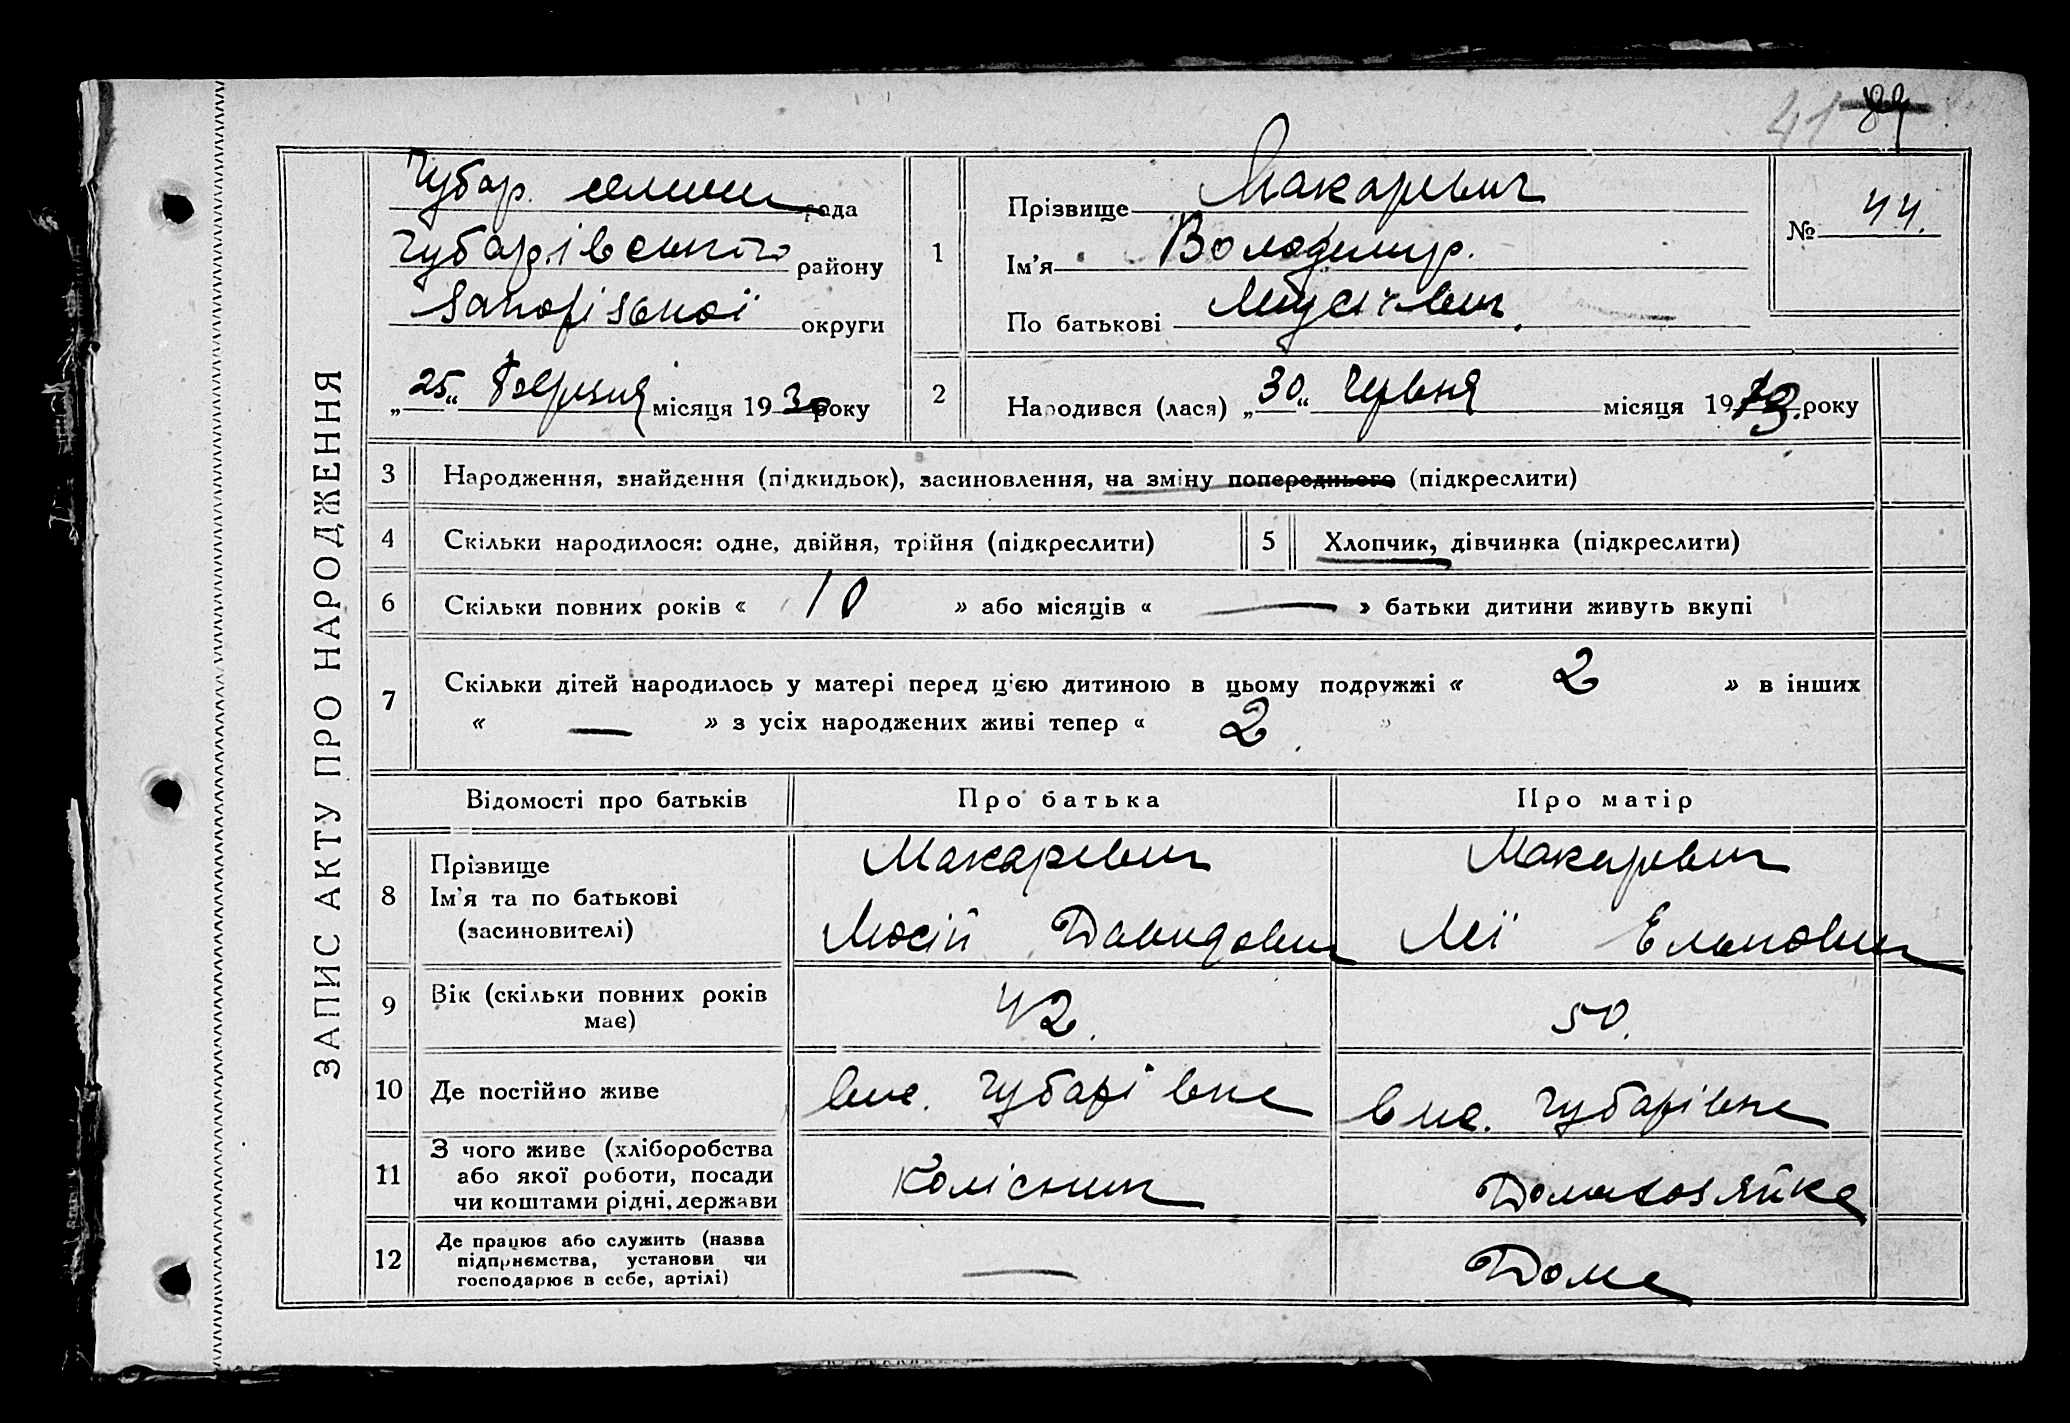 41 89
ЗАПИС АКТУ ПРО НАРОДЖЕННЯ
Чубар. рада
Чубарівського району
Запорізької округи
„25“ березня місяця 1930 року
1
Прізвище Макаревич
Ім'я Володимир.
По батькові
№ 44.
2
Народився (лася) „30“ Червня місяця 1913. року
3 Народження, знайдення (підкидьок), засиновлення, на зміну попереднього (підкреслити)
4 Скільки народилося: одне, двійня, трійня (підкреслити)
5 Хлопчик, дівчинка (підкреслити)
6 Скільки повних років « 10 » або місяців « — » батьки дитини живуть вкупі
7 Скільки дітей народилось у матері перед цією дитиною в цьому подружжі « 2 » в інших
« — » з усіх народжених живі тепер « 2. »
Відомості про батьків Про батька Про матір
8 Прізвище
Ім'я та по батькові
(засиновителі)
Макаревич
Мосій Давидович
Макаревич
9 Вік (скільки повних років
має)
42. 50.
10 Де постійно живе
Чубарівке
Чубарівке
11 З чого живе (хліборобства
або якої роботи, посади
чи коштами рідні, держави
Колісник
Домахозяйка
12 Де працює або служить (назва
підприємства, установи чи
господарює в себе, артілі)
—
Дома